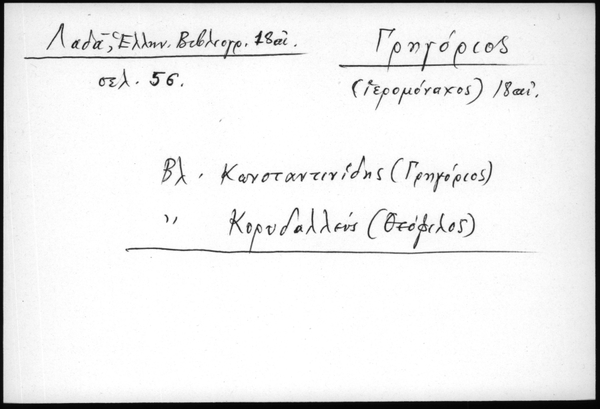 Λαδᾶ, Ἑλλην. Βιβλιογρ. 18αἰ.
σελ. 56.
Γρηγόριος
(ἱερομόναχος) 18αἰ.
Βλ. Κωνσταντινίδης (Γρηγόριος)
" Κορυδαλλεύς (Θεόφιλος)